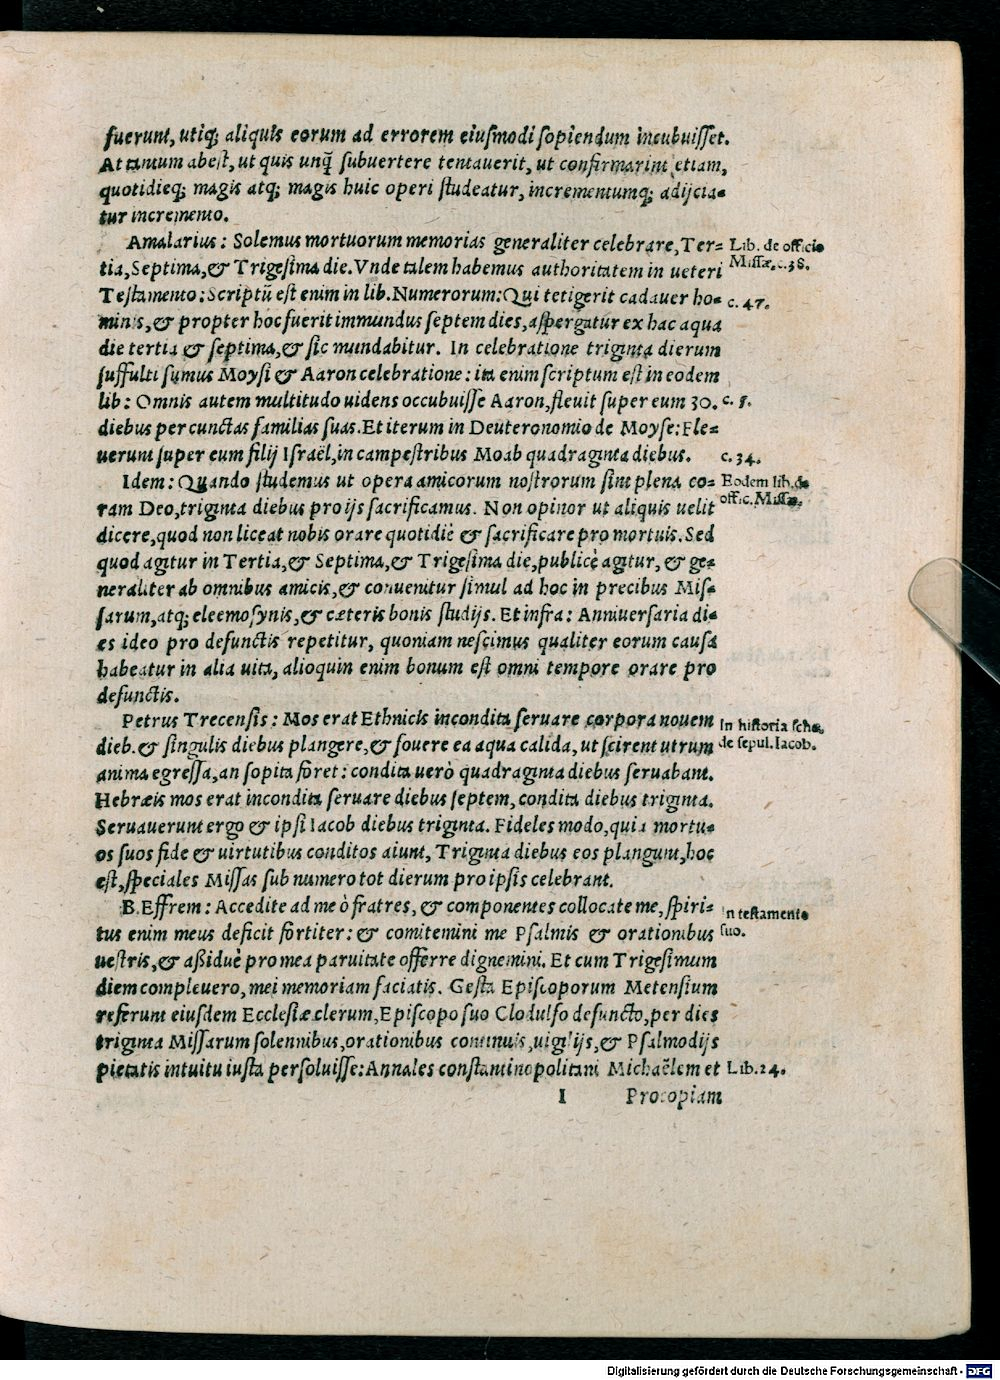 fuerunt, utiq; aliquis eorum ad errorem eiusmodi sopiendum incubuisset.
At tantum abest, ut quis unq̃ subuertere tentauerit, ut confirmarint etiam,
quotidieq; magis atq; magis huic operi studeatur, incrementumq; adijcia-
tur incremento.
Amalarius: Solemus mortuorum memorias generaliter celebrare, Ter-
Lib. de officio
tia, Septima, & Trigesima die. Vnde talem habemus authoritatem in ueteri
Missæ. c. 38.
Testamento: Scriptũ est enim in lib. Numerorum: Qui tetigerit cadauer ho-
c. 47.
minis, & propter hoc fuerit immundus septem dies, aspergatur ex hac aqua
die tertia & septima, & sic mundabitur. In celebratione triginta dierum
suffulti sumus Moysi & Aaron celebratione: ita enim scriptum est in eodem
lib: Omnis autem multitudo uidens occubuisse Aaron, fleuit super eum 30.
diebus per cunctas familias suas. Et iterum in Deuteronomio de Moyse: Fle-
uerunt super eum filij Israël, in campestribus Moab quadraginta diebus.
c. 34.
Idem: Quando studemus ut opera amicorum nostrorum sint plena co-
Eodem lib. de
ram Deo, triginta diebus pro ijs sacrificamus. Non opinor ut aliquis uelit
offic. Missæ.
dicere, quod non liceat nobis orare quotidie & sacrificare pro mortuis. Sed
quod agitur in Tertia, & Septima, & Trigesima die, publicè agitur, & ge-
neraliter ab omnibus amicis, & conuenitur simul ad hoc in precibus Mis-
sarum, atq; eleemosynis, & cæteris bonis studijs. Et infra: Anniuersaria di-
es ideo pro defunctis repetitur, quoniam nescimus qualiter eorum causa
habeatur in alia uita, alioquin enim bonum est omni tempore orare pro
defunctis.
Petrus Trecensis: Mos erat Ethnicis incondita seruare corpora nouem
In historia scho.
dieb. & singulis diebus plangere, & fouere ea aqua calida, ut scirent utrum
de sepul. Iacob.
anima egressa, an sopita foret: condita uerò quadraginta diebus seruabant.
Hebræis mos erat incondita seruare diebus septem, condita diebus triginta.
Seruauerunt ergo & ipsi Iacob diebus triginta. Fideles modo, quia mortu-
os suos fide & uirtutibus conditos aiunt, Triginta diebus eos plangunt, hoc
est, speciales Missas sub numero tot dierum pro ipsis celebrant.
B. Effrem: Accedite ad me ò fratres, & componentes collocate me, spiri-
In testamento
tus enim meus deficit fortiter: & comitemini me Psalmis & orationibus
suo.
uestris, & aßiduè pro mea paruitate offerre dignemini. Et cum Trigesimum
diem compleuero, mei memoriam faciatis. Gesta Episcoporum Metensium
referunt eiusdem Ecclesiæ clerum, Episcopo suo Clodulfo defuncto, per dies
triginta Missarum solennibus, orationibus continuis, uigilijs, & Psalmodijs
pietatis intuitu iusta persoluisse: Annales constantinopolitani Michaëlem et
Lib. 24.
I Procopiam
Digitalisierung gefördert durch die Deutsche Forschungsgemeinschaft - DFG